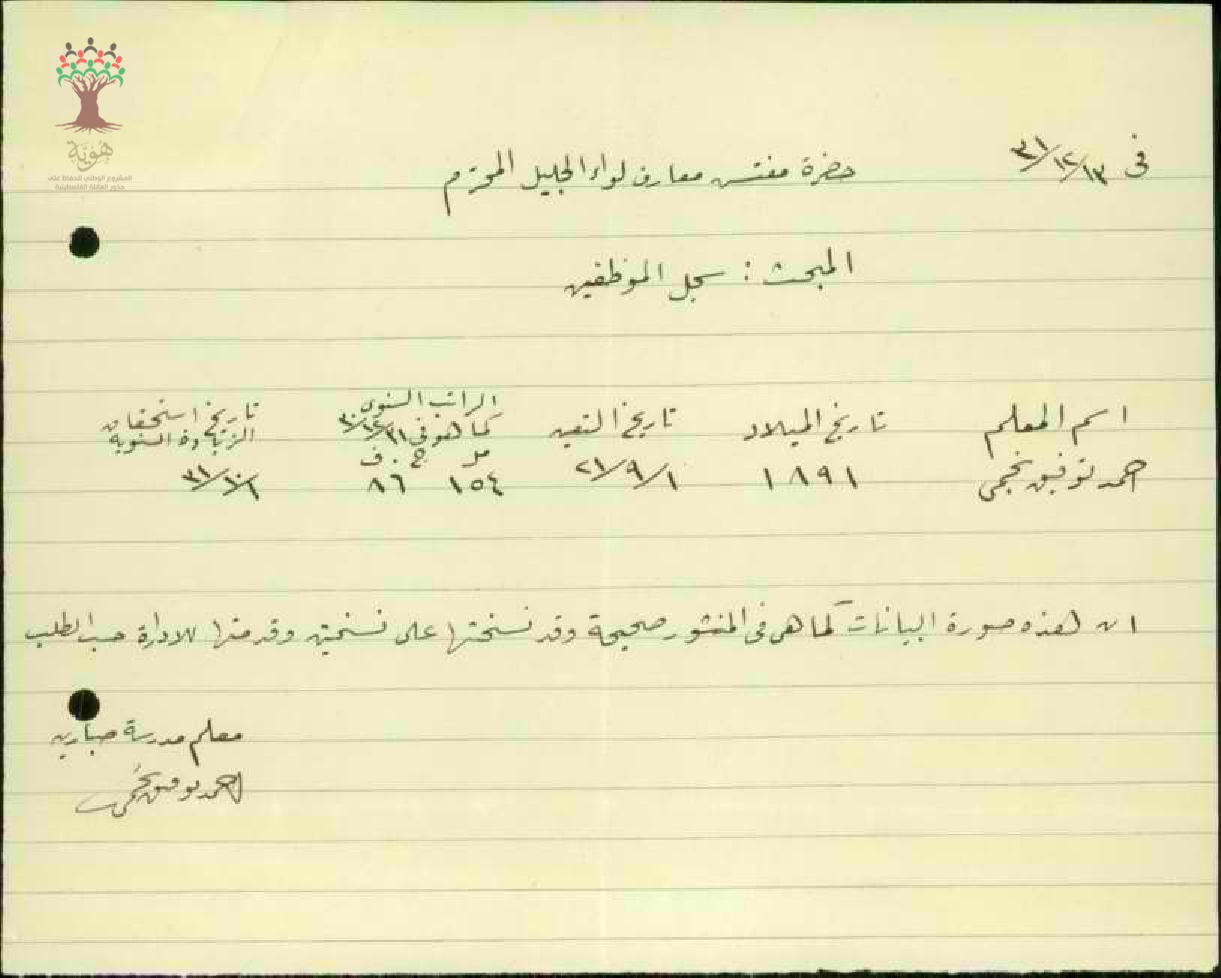 هُوِيَّة
المشروع الوطني للحفاظ على
جذور العائلة الفلسطينية
في ١٣/١٢/٣١
حضرة مفتش معارف لواء الجليل المحترم
المبحث : سجل الموظفين
اسم المعلم تاريخ الميلاد تاريخ التعيين الراتب السنوي كما هو في ٣١/١٢/٣٠ تاريخ استحقاق الزيادة السنوية
مل ج . ف
احمد توفيق نجمي ١٨٩١ ١/٩/٢١ ١٥٤ ٨٦ ١/١٠/٣١
ان هذه صورة البيانات كما هي في المنشور صحيحة وقد نسختها على نسختين وقدمتها للادارة حسب الطلب
معلم مدرسة
احمد توفيق نجمي